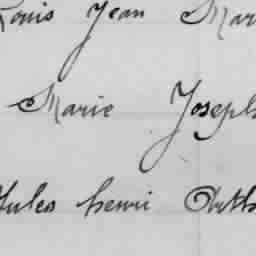 Louis Jean Mari
Marie Joseph
Jules henri Arth